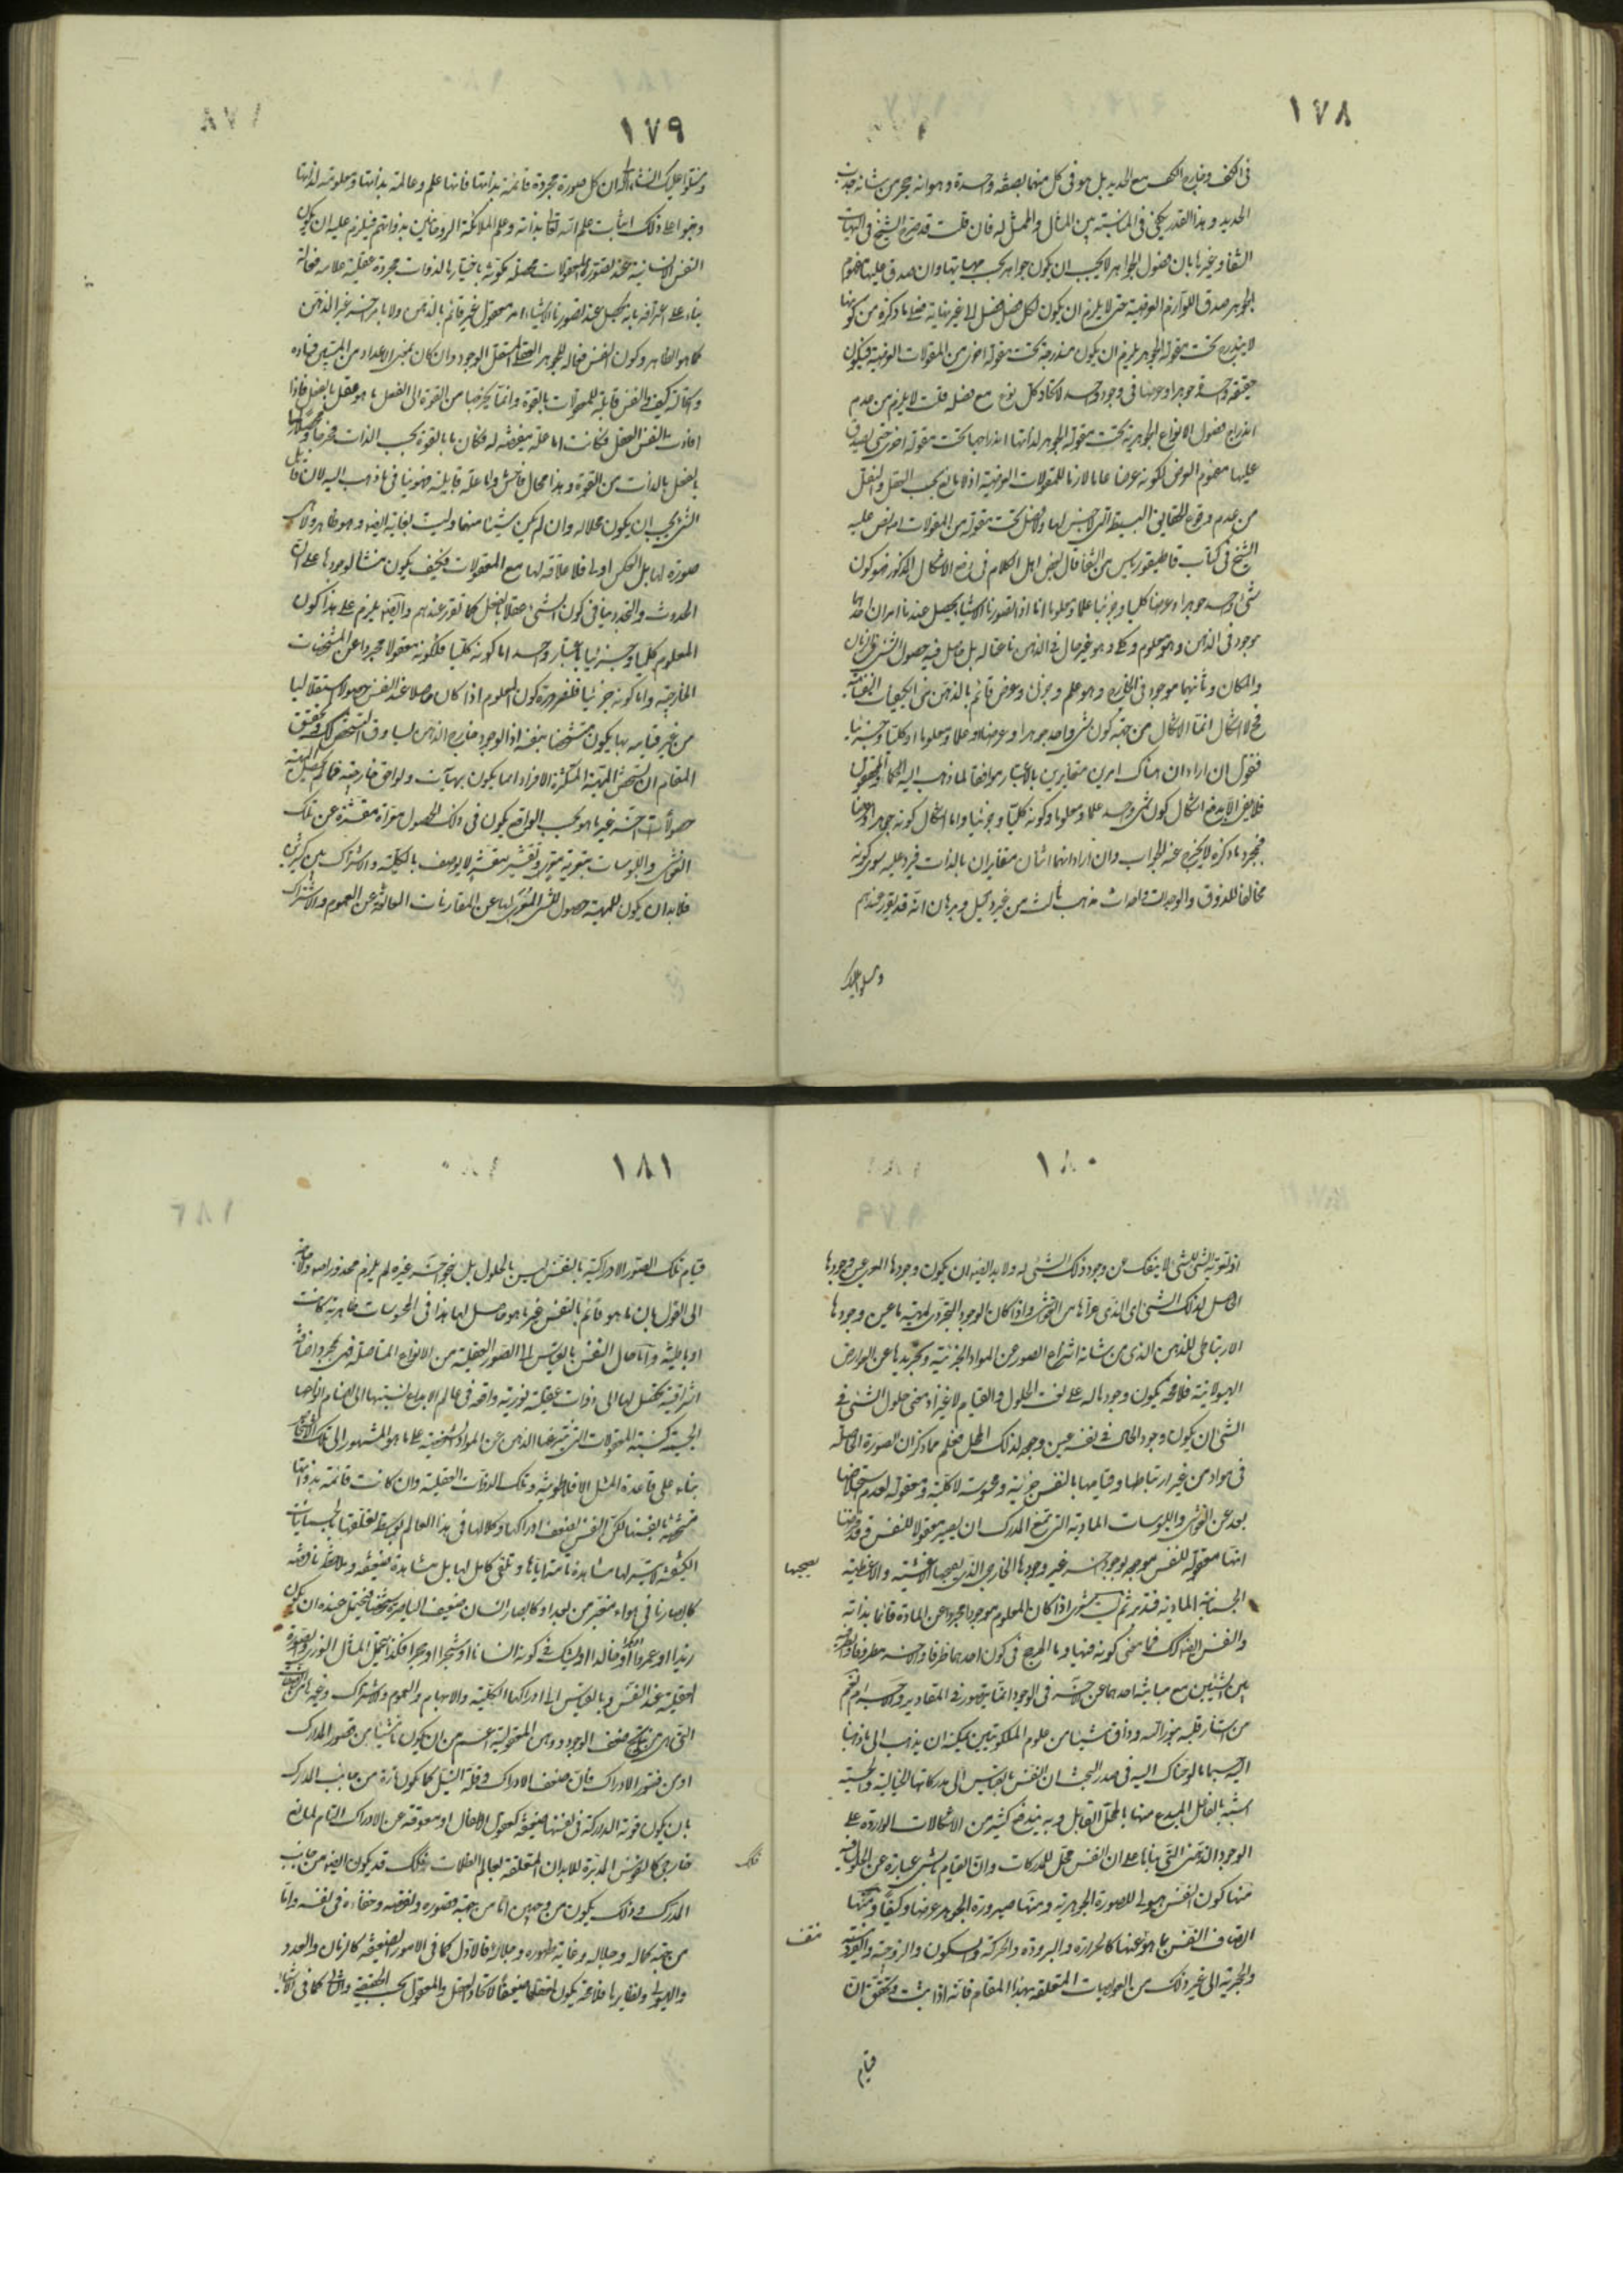 ١٧٨
فى الكف وخارج الكف مع الحديد بل هو فى كل منهما بصفة واحدة وهو انه حجر من شانه جذب
الحديد وهذا القدر يكفى فى المناسبة بين المثال والممثل له فان قلت قد صرح الشيخ فى الهيات
الشفا وغيرها بان فصول الجواهر لا يجب ان يكون جواهر بحسب مهياتها وان صدق عليها مفهوم
الجوهر صدق اللوازم العرضية حتى لا يلزم ان يكون لكل فصل فصل الى غير نهاية فعلى ما ذكره من كونها
لا يندرج تحت مقولة الجوهر يلزم ان يكون مندرجة تحت مقولة اخرى من المقولات العرضية فيكون
حقيقة واحدة جوهرا وعرضا فى وجود واحد لاتحاد كل نوع مع فصله قلت لا يلزم من عدم
اندراج فصول الانواع الجوهرية تحت مقولة الجوهر لذاتها اندراجها تحت مقولة اخرى حتى يصدق
عليها مفهوم العرض لكونه عرضا عاما لازما للمقولات العرضية اذ لا مانع بحسب العقل والنقل
من عدم وقوع الحقايق البسيطة التى لا جنس لها ولا فصل تحت مقولة من المقولات اصلا نص عليه
الشيخ فى كتاب قاطيقورياس من الشفا قال بعض اهل الكلام فى دفع الاشكال المذكور وهو كون
شئ واحد جوهرا وعرضا كليا وجزئيا علما ومعلوما انا اذا تصورنا الاشيا يحصل عندنا امران احدهما
موجود فى الذهن وهو معلوم وكلى وهو غير حال فى الذهن ناعتا له بل حاصل فيه حصول الشئ فى الزمان
والمكان وثانيهما موجود فى الخارج وهو علم وجزئى وعرض قائم بالذهن من الكيفيات النفسانية
فح لا اشكال انما الاشكال من جهة كون شئ واحد جوهرا وعرضا او علما ومعلوما او كليا وجزئيا
فنقول ان اراد ان هناك امرين متغايرين بالاعتبار موافقا لما ذهب اليه الحكماء المحققون
فلا يفى الا بدفع اشكال كون شئ واحد علما ومعلوما وكونه كليا وجزئيا واما اشكال كونه جوهرا وعرضا
فبمجرد ما ذكره لا يخرج عنه الجواب وان اراد انهما اثنان متغايران بالذات فيرد عليه سوى كونه
مخالفا للذوق والوجدان واحداث مذهب ثالث من غير دليل وبرهان انه قد تقرر عندهم

١٧٩
وسنتلوا عليك انشاء الله ان كل صورة مجردة قائمة بذاتها فانها علم وعالمة بذاتها ومعلومة لذاتها
وبنوا على ذلك اثبات علم الله تعا بذاته وعلم الملائكة الروحانيين بذواتهم فيلزم عليه ان يكون
النفس الانسانية عند تصورها المعقولات محصلة مكونة باختيارها لذوات مجردة عقلية علامة فعالة
بناء على اعترافه بانه يحصل عند تصورنا الاشياء امر معقول غير قائم بالذهن ولا بامر اخر غير الذهن
كما هو الظاهر وكون النفس فعالة للجوهر العقلى المستقل الوجود وان كان بمعنى الاعداد من المستبين فساده
واستحالته كيف والنفس قابلة للمعقولات بالقوة وانما يخرجها من القوة الى الفعل ما هو عقل بالفعل فاذا
افادت النفس العقل فكانت اما علة مفيضة له فكان ما بالقوة بحسب الذات مخرجا ومحصلا لما
بالفعل بالذات من القوة وهذا محال فاحش واما علة قابلية فهو ينافى ما ذهب اليه لان قابل
الشئ يجب ان يكون محلا له وان لم يكن شيئا منهما وليست بغاية ايضا وهو ظاهر ولا
صورة لها بل العكس اولى فلا علاقة لها مع المعقولات فكيف يكون منشا لوجودها على ان
الحدوث والتجدد ينافى كون الشئ عقلا بالفعل كما تقرر عندهم وايضا يلزم على هذا كون
المعلوم كليا وجزئيا باعتبار واحد اما كونه كليا فلكونه معقولا مجردا عن المشخصات
الخارجية واما كونه جزئيا فلضرورة كون المعلوم اذا كان حاصلا عند النفس حصولا استقلاليا
من غير قيامه بها يكون متشخصا بنفسه اذ الوجود خارج الذهن يساوق التشخص لكن وتحقيق
المقام ان تشخص المهية المتكثرة الافراد انما يكون بهيآت ولواحق خارجية فما لم يحصل للمهية
حصولات اخر غير ما هو بحسب الواقع يكون فى ذلك الحصول معراة مقشرة عن تلك
الغواشى واللبوسات بتعرية معرّ وتقشير مقشر لا يوصف بالكلية والاشتراك بين كثيرين
فلا بد ان يكون للمهية حصول للشئ المعرى اياها عن المقارنات المانعة عن العموم والاشتراك
وسنتلو عليك

١٨٠
اذ تعرية الشئ للشئ لا ينفك عن وجود ذلك الشئ له ولا بد ايضا ان يكون وجودها العرى عين وجودها
الحاصل لذلك الشئ اى الذى عراها من الغواشى واذا كان الوجود التجردى لمهية ما عين وجودها
الارتباطى للذهن الذى من شانه انتزاع الصور عن المواد الجزئية وتجريدها عن العوارض
الهيولانية فلا محة يكون وجودها له على نعت الحلول والقيام لا غير اذ معنى حلول الشئ فى
الشئ ان يكون وجود الحال فى نفسه عين وجوده لذلك المحل فعلم مما ذكر ان الصورة الحاصلة
فى مواد من غير ارتباطها وقيامها بالنفس جزئية ومحسوسة لا كلية ومعقولة لعدم استخلاصها
بعد عن الغواشى واللبوسات المادية التى تمنع المدرك ان يصير معقولا للنفس وقد فرضنا
انها معقولة للنفس موجودة بوجود اخر غير وجودها الخارجى الذى يصحبها الاغشية والاغطية
يصحبها
الجسمانية المادية فتدبر ثم ليت شعرى اذا كان المعلوم موجودا مجردا عن المادة قائما بذاته
والنفس ايضا كذلك فما معنى كونه فيها وما المرجح فى كون احدهما ظرفا والاخر مظروفا والظرفية
بين الشيئين مع مباينة احدهما عن الاخر فى الوجود انما يتصور فى المقادير والاجرام ثم
من استنار قلبه بنور الله وذاق شيئا من علوم الملكوتيين يمكنه ان يذهب الى ما ذهبنا
اليه سيما ما لوحناك اليه فى صدر المبحث ان النفس بالقياس الى مدركاتها الخيالية والحسية
اشبه بالفاعل المبدع منها بالمحل القابل وبه يندفع كثير من الاشكالات الواردة على
الوجود الذهنى التى بناها على ان النفس محل للمدركات وان القيام بالشئ عبارة عن الحلول فيه
منها كون النفس هيولى للصورة الجوهرية ومنها صيرورة الجوهر عرضا وكيفا ومنها
اتصاف النفس بما هو عنها كالحرارة والبرودة والحركة والسكون والزوجية والفردية
والحجرية الى غير ذلك من العويصات المتعلقة بهذا المقام فانه اذا ثبت وتحقق ان
قيام

١٨١
قيام تلك الصور الادراكية بالنفس ليس بالحلول بل بنحو اخر غيره لم يلزم محذور اصلا ولا حاجة
الى القول بان ما هو قائم بالنفس غير ما هو حاصل لها هذا فى المحسوسات ظاهرية كانت
او باطنية واما حال النفس بالقياس الى الصور العقلية من الانواع المتاصلة فهى بمجرد اضافة
اشراقية تحصل لها الى ذوات عقلية نورية واقعة فى عالم الابداع نسبتها الى اصنام انواعها
الجسمية كنسبة المعقولات التى ينتزعها الذهن عن المواد الشخصية على ما هو المشهور الى تلك الاشخاص
بناء على قاعدة المثل الافلاطونية وتلك الذوات العقلية وان كانت قائمة بذواتها
متشخصة بانفسها لكن النفس لضعف ادراكها وكلالها فى هذا العالم بواسطة تعلقها بالجسمانيات
الكثيفة لا يتيسر لها مشاهدة تامة اياها وتلقى كامل لها بل مشاهدة ضعيفة وملاحظة ناقصة
كابصارنا فى هواء مغبر من بعد او كابصار انسان ضعيف الباصرة شخصا فيحتمل عنده ان يكون
زيدا او عمروا او بكرا او خالدا او يشك فى كونه انسانا او شجرا او حجرا فكذا يحتمل المثال النورى والصورة
العقلية عند النفس وبالقياس الى ادراكها الكلية والابهام والعموم والاشتراك وغيرها من الصفات
التى هى من نتايج ضعف الوجود ووهن المعقولية اعم من ان يكون ناشيا من قصور المدرك
او من فتور الادراك فان ضعف الادراك وقلة النيل كما يكون تارة من جانب المدرك
بان يكون قوته الدراكة فى نفسها ضعيفة كعقول الاطفال او معوقة عن الادراك التام لمانع
خارجى كالنفوس المدبرة للابدان المتعلقة بعالم الظلمات فكذلك قد يكون ايضا من جانب
المدرك وذلك يكون من وجهين اما من جهة قصوره ونقصه وخفاءه فى نفسه واما
من جهة كماله وجلاله وغاية ظهوره وجلائه فالاول كما فى الامور الضعيفة كالزمان والعدد
والهيولى ونظايرها فلا محة يكون تعقلها ضعيفا لاتحاد العقل والمعقول بالحقيقة والثانى كما فى الاشياء